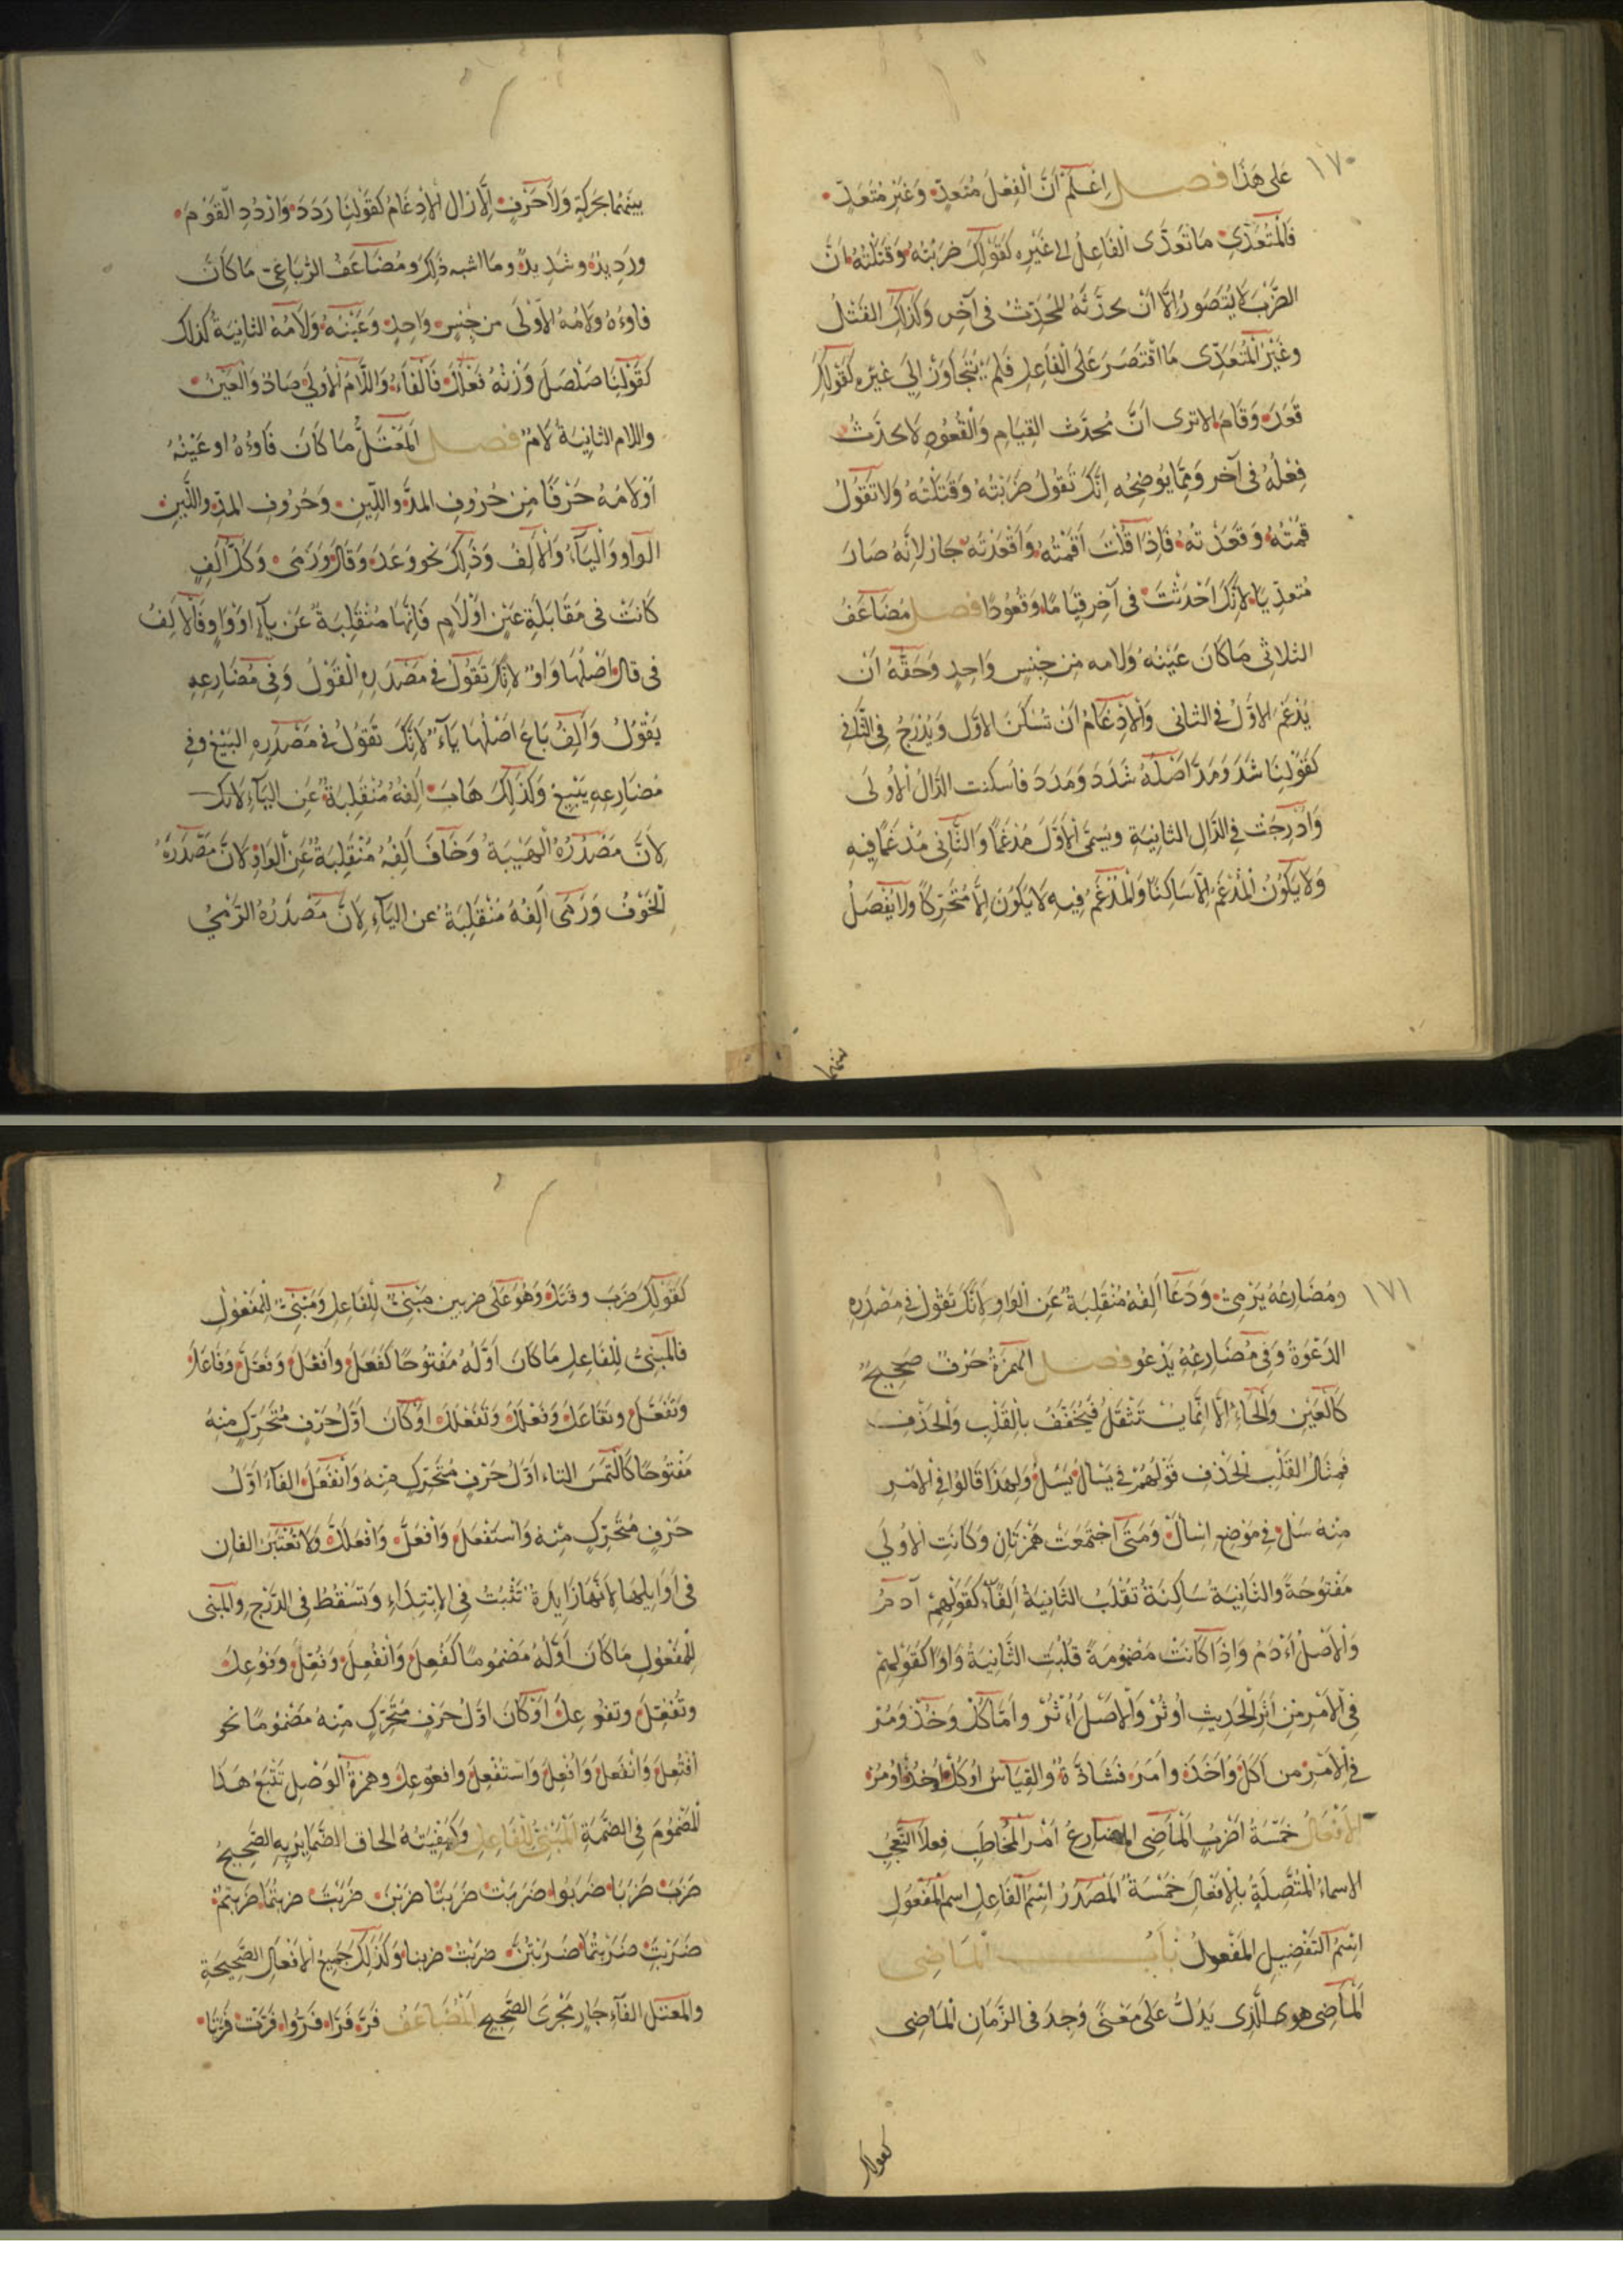 ١٧٠
على هَذَا فصل اِعْلَمْ أَنَّ الْفِعْلَ مُتَعَدٍّ وَغَيْر مُتَعَدٍّ
فَالْمُتَعَدِّي مَا تَعَدَّى الْفَاعِلُ الى غَيْرِهِ كَقَوْلِكَ ضَرَبْتُهُ وَقَتَلْتُهُ لانَّ
الضَّرْبَ لَا يُتَصَوَّرُ إِلَّا أَنْ يحدثَهُ المُحْدِثُ فى آخِر وَكَذَلِكَ القَتْلُ
وغَيْرُ الْمُتَعَدِّى مَا اقْتَصَرَ عَلَى الْفَاعِلِ فَلَمْ يَتَجَاوَزْ إِلَى غَيْرِهِ كَقَوْلِكَ
قَعَدَ وَقَامَ الا ترى أَنَّ مُحْدِثَ القِيَامِ وَالْقُعُودِ لا يحدثُ
فِعْلَهُ فى آخر وَمِمَّا يُوضِحُه اِنَّكَ تَقُولُ ضَرَبْتُهُ وَقَتَلْتُهُ وَلا تَقُولُ
قُمْتُهُ وَقَعَدْتُهُ فَاِذَا قُلْتَ أَقَمْتُهُ وَأَقْعَدْتُهُ جَازَ لِاَنَّهُ صَارَ
مُتَعَدِّيًا لِاَنَّكَ اَحْدَثْتَ فى آخِر قِيَامًا وَقُعُودًا فصل مُضَاعَفُ
الثلاثى مَا كَانَ عَيْنُهُ وَلامه مِنْ جِنْسٍ وَاحِدٍ وَحَقُّهُ اَنْ
يُدْغَمَ الاوَّلُ فِى الثانى وَالْاِدْغَامُ اَنْ تُسَكِّنَ الاوَّلَ وَيُدْرَجَ فِى الثَّانِى
كَقَوْلِنَا شَدَّ وَمَدَّ اَصْلُهُ شَدَدَ وَمَدَدَ فاسكنت الدَّالُ الْاُولَى
وَاُدْرِجَتْ فِى الدَّالِ الثانِيَةِ وَيُسَمَّى الْاَوَّلُ مُدْغَمًا وَالثَّانِى مُدْغَمًا فِيهِ
وَلَا يَكُونُ الْمُدْغَمُ اِلَّا سَاكِنًا وَالْمُدْغَمُ فِيهِ لَا يَكُونُ اِلَّا مُتَحَرِّكًا وَلَا يُفْصَلُ
بينهما
بَيْنَهُمَا بِحَرَكَةٍ وَلَا حَرْفٍ اِلَّا زَالَ الْاِدْغَامُ كَقَوْلِنَا رَدَدَ وَارْدُدِ الْقَوْمَ
وَرَدِيدٌ وشَدِيدٌ وما اشبه ذَلِكَ ومُضَاعَفُ الرُّبَاعِى مَا كَانَ
فاؤُهُ ولامُهُ الْاُولَى مِن جِنْسٍ وَاحِدٍ وَعَيْنُهُ وَلَامُهُ الثانِيَةُ كَذلك
كَقَوْلِنَا صَلْصَلَ وَزْنُهُ فَعْلَلَ فَالْفَاءُ وَاللَّامُ الْاُولى صَادٌ وَالْعَيْنُ
واللام الثانِيَةُ لَامٌ فصل الْمُعْتَلُّ مَا كَانَ فَاؤُهُ او عَيْنُهُ
اَوْ لامُهُ حَرْفًا مِنْ حُرُوفِ المَدِّ واللِّينِ وَحُرُوفُ المَدِّ واللِّينِ
الْوَاو وَالْيَاءُ وَالْاَلِفُ وَذَلِكَ نحو وَعَدَ وَقَالَ وَرَمَى وَكُلُّ اَلِفٍ
كَانَتْ فى مُقَابَلَةِ عَيْنٍ اَوْ لَامٍ فَاِنَّهَا مُنْقَلِبَةٌ عَنْ يَاءٍ اَوْ وَاوٍ فَالْاَلِفُ
فى قال اَصْلُهَا وَاوٌ لِاَنَّكَ تَقُولُ فى مَصْدَرِهِ الْقَوْلُ وَفى مُضَارِعِهِ
يَقُولُ وَاَلِفُ بَاعَ اَصْلُهَا يَاءٌ لِاَنَّكَ تَقُولُ فى مَصْدَرِهِ الْبَيْعُ وَفى
مُضَارِعِهِ يَبِيعُ وَكَذَلِكَ هَابَ اَلِفُهُ مُنْقَلِبَةٌ عَنِ الْيَاءِ لانك
لِاَنَّ مَصْدَرَهُ الْهَيْبَةُ وَخَافَ اَلِفُهُ مُنْقَلِبَةٌ عَنِ الْوَاوِ لِاَنَّ مَصْدَرَهُ
الْخَوْفُ وَرَمَى اَلِفُهُ مُنْقَلِبَةٌ عن الْيَاءِ لِاَنَّ مَصْدَرَهُ الرَّمْيُ
١٧١
ومُضَارِعُهُ يَرْمِى وَدَعَا اَلِفُهُ مُنْقَلِبَةٌ عَنِ الْوَاوِ لِاَنَّكَ تَقُولُ فى مَصْدَرِهِ
الدَّعْوَةُ وَفى مُضَارِعِهِ يَدْعُو فصل الهمزَةُ حَرْفٌ صَحِيحٌ
كَالْعَيْنِ وَالْحَاءِ اِلَّا اَنَّهَا يُسْتَثْقَلُ فَيُخَفَّفُ بِالْقَلْبِ وَالْحَذْفِ
فَمِثَالُ القَلْبِ الحَذف قَوْلُهُمْ فى يَسْاَلُ يَسَلُ وَلِهَذَا قَالُوا فى الْاَمْرِ
مِنْهُ سَلْ فى مَوْضِعِ اِسْاَلْ وَمَتَى اجْتَمَعَتْ هَمْزَتَانِ وَكَانَتِ الْاُولَى
مَفْتُوحَةً وَالثَّانِيَةُ سَاكِنَةٌ تُقْلَبُ الثَّانِيَةُ اَلِفًا كَقَوْلِهِمْ آدَمُ
وَالْاَصْلُ اَءْدَمُ وَاِذَا كَانَتْ مَضْمُومَةً قُلِبَتِ الثَّانِيَةُ وَاوًا كَقَوْلِهِمْ
فى الْاَمْرِ مِنْ اَثَرَ الْحَدِيثَ اُوثُرْ وَالْاَصْلُ اُءْثُرْ واَمَّا كُلْ وَخُذْ وَمُرْ
فى الْاَمْرِ من اَكَلَ وَاَخَذَ وَاَمَرَ فَشَاذَّةٌ وَالْقِيَاسُ اُوكُلْ اُوخُذْ اُومُرْ
الْاَفْعَالُ خَمْسَةُ اَضْرُبٍ الْمَاضِى المضارعُ اَمْرُ الْمُخَاطَبِ فِعْلَا التَّعَجُّبِ
الاسماءُ الْمُتَّصِلَةُ بِالْاَفْعَالِ خَمْسَةٌ الْمَصْدَرُ اسْمُ الْفَاعِلِ اسم الْمَفْعُولِ
اِسْمُ التَّفْضِيلِ الْمَفْعُولُ بَابُ الْمَاضِى
الْمَاضِى هوى الَّذِى يَدُلُّ عَلَى مَعْنًى وُجِدَ فى الزَّمَانِ الْمَاضِى
كقولك
كَقَوْلِكَ ضَرَبَ وقَتَلَ وَهُوَ عَلَى ضربين مَبْنِىٌّ لِلْفَاعِلِ وَمَبْنِىٌّ لِلْمَفْعُولِ
فَالْمَبْنِىُّ لِلْفَاعِلِ مَا كَانَ اَوَّلُهُ مَفْتُوحًا كَفَعَلَ وَاَفْعَلَ وَفَعَّلَ وَفَاعَلَ
وَتَفَعَّلَ وتَفَاعَلَ وَفَعْلَلَ وَتَفَعْلَلَ اَوْ كَانَ اَوَّلُ حَرْفٍ مُتَحَرِّكٍ مِنْهُ
مَفْتُوحًا كَالْتَمَسَ التاء اَوَّلُ حَرْفٍ مُتَحَرِّكٍ مِنْهُ وَانْفَعَلَ الفَاءُ اَوَّلُ
حَرْفٍ مُتَحَرِّكٍ مِنْهُ وَاسْتَفْعَلَ وَافْعَلَّ وَافْعَلَلَّ وَلَا تُعْتَبَرُ الفات
فى اَوَايلِهَا لِاَنَّهَا زَايِدَةٌ تَثْبُتُ فى الْاِبْتِدَاءِ وَتَسْقُطُ فى الدَّرْجِ وَالْمَبْنِى
لِلْمَفْعُولِ مَا كَانَ اَوَّلُهُ مَضْمُومًا كَفُعِلَ وَاُفْعِلَ وَفُعِّلَ وَفُوعِلَ
وتُفُعِّلَ وتفُوعِلَ اَوْ كَانَ اوَّلُ حَرْفٍ مُتَحَرِّكٍ مِنْهُ مَضْمُومًا نحو
اُفْتُعِلَ وَانْفُعِلَ وَافُعِلَّ وَاسْتُفْعِلَ وافعوعل وهمزةُ الْوَصْلِ تَتْبَعُ هَذَا
الْمَضْمُومَ فى الضَّمَّةِ الْمَبْنِىُّ لِلْفَاعِلِ وَكَيْفِيَّتُهُ الحاق الضَّمَايِرِ بِهِ الصَّحِيحُ
ضَرَبَ ضَرَبَا ضَرَبُوا ضَرَبَتْ ضَرَبَتَا ضَرَبْنَ ضَرَبْتَ ضربتُمَا ضَرَبْتُمْ
ضَرَبْتِ ضَرَبْتُمَا ضَرَبْتُنَّ ضربْتُ ضربنا وَكَذَلِكَ جَمِيعُ الْاَفْعَالِ الصَّحِيحَةِ
والمعتل الفَاءِ جَارٍ مَجْرَى الصَّحِيحِ الْمُضَاعَفُ فَرَّ فَرَّا فَرُّوا فَرَّتْ فَرَّتَا